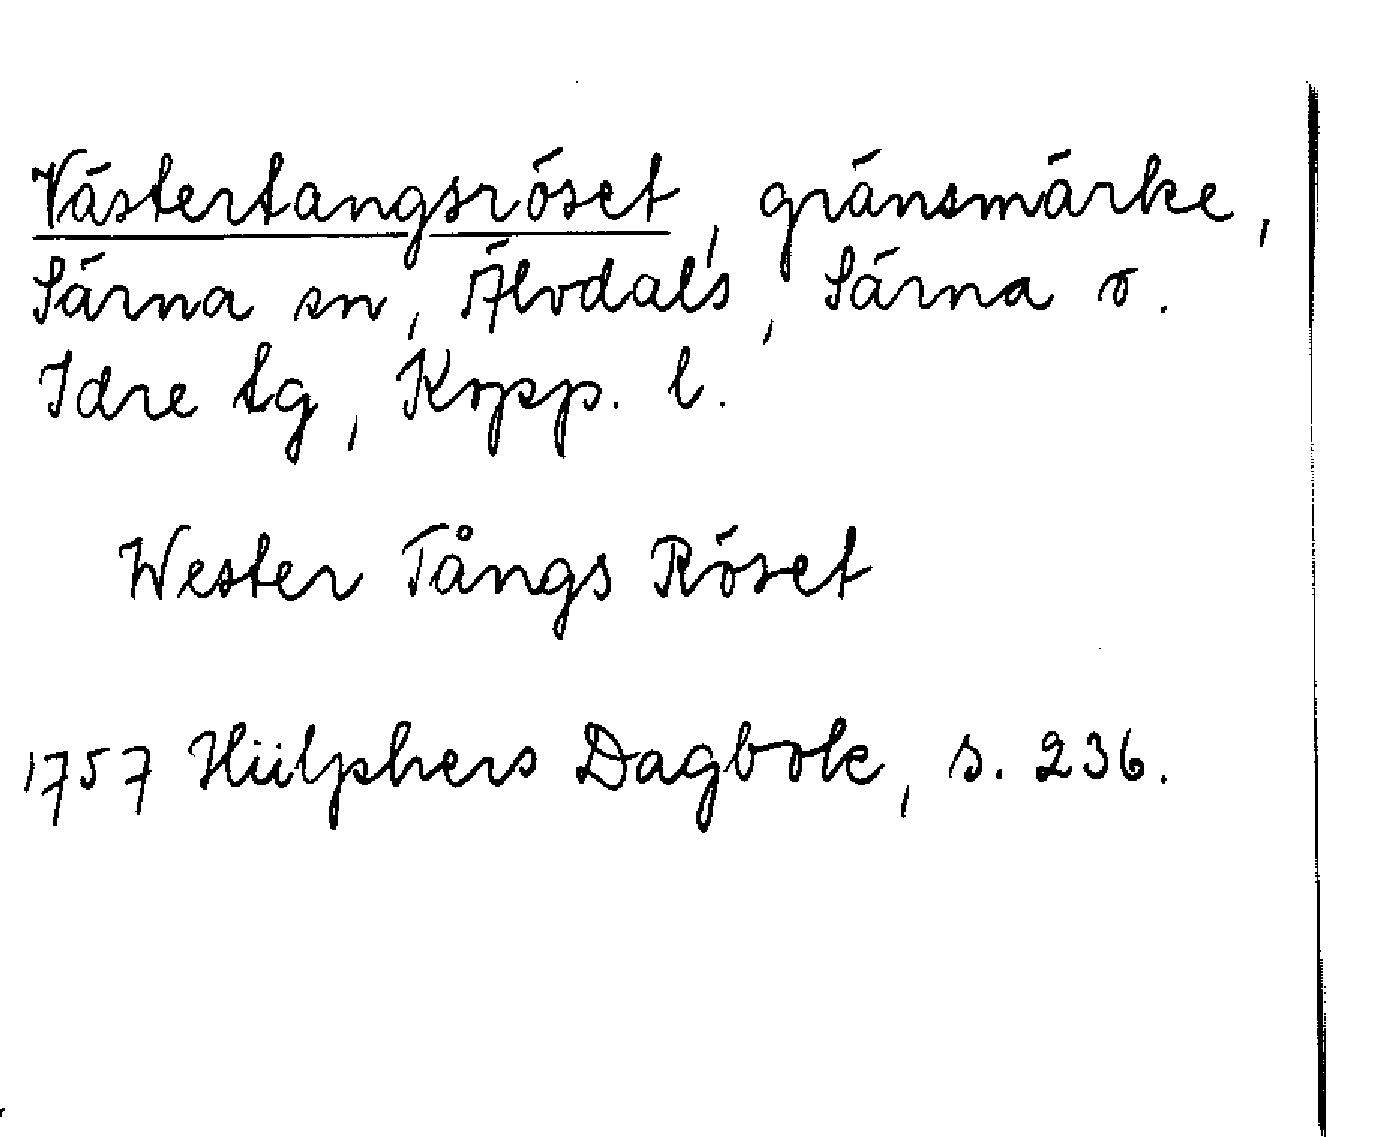 Västertangsröset, gränsmärke,
Särna sn, Älvdals, Särna o.
Idre tg, Kopp. l.
Wester Tångs Röset
1757 Hülphers Dagbok, s. 236.